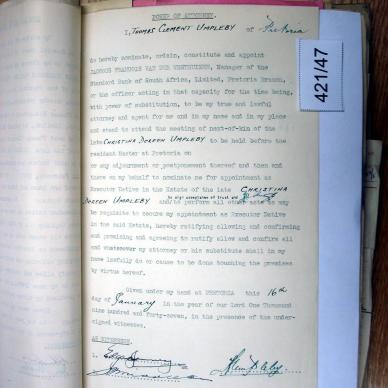 POWER OF ATTORNEY.
I, THOMAS CLEMENT UMPLEBY of Pretoria
do hereby nominate, ordain, constitute and appoint
JACOBUS FRANCOIS VAN DER WESTHUIZEN, Manager of the
Standard Bank of South Africa, Limited, Pretoria Branch,
or the officer acting in that capacity for the time being,
with power of substitution, to be my true and lawful
attorney and agent for me and in my name and in my place
and stead to attend the meeting of next-of-kin of the
late CHRISTINA DOREEN UMPLEBY to be held before the
resident Master at Pretoria on
or any adjournment or postponement thereof and then and
there on my behalf to nominate me for appointment as
Executor Dative in the Estate of the late CHRISTINA
to sign acceptance of trust and
DOREEN UMPLEBY and/to perform all other acts as may
be requisite to secure my appointment as Executor Dative
in the said Estate, hereby ratifying allowing and confirming
and promising and agreeing to ratify allow and confirm all
and whatsoever my attorney or his substitute shall in my
name lawfully do or cause to be done touching the premises
by virtue hereof.
Given under my hand at PRETORIA this 16th
day of January in the year of our Lord One Thousand
nine hundred and forty-seven, in the presence of the under-
signed witnesses.
AS WITNESSES.
1.
421/47